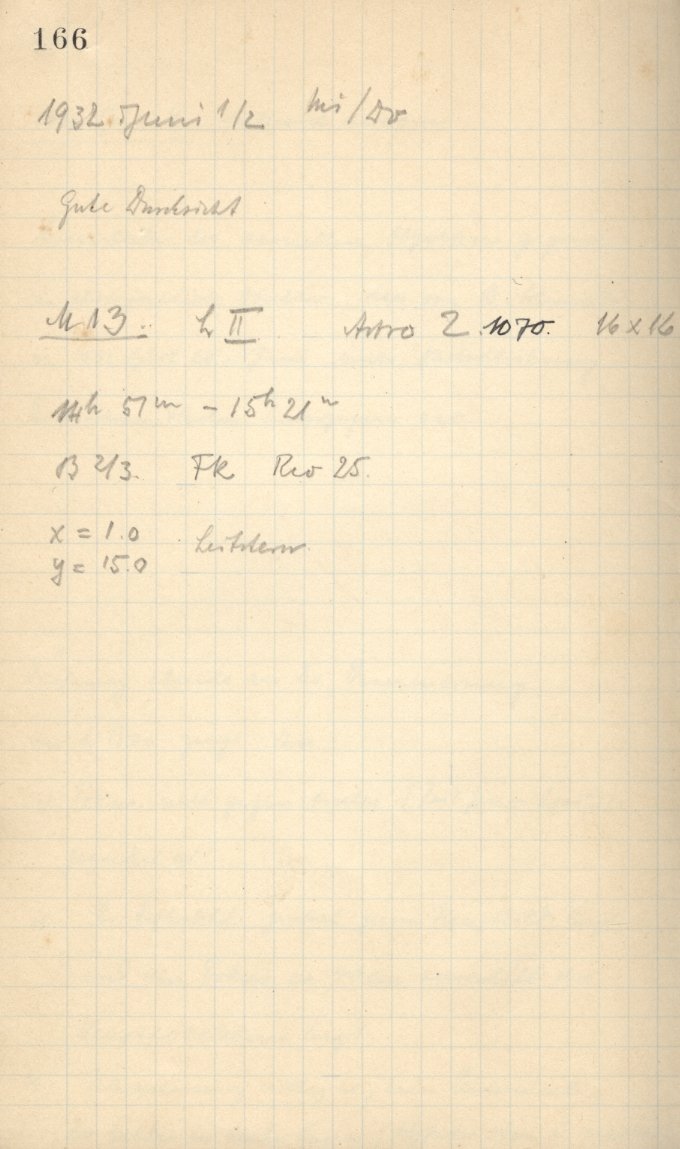 166
1932 Juni 1/2 Mi/Do
Gute Durchsicht
M 13. L II Astro Z 1070. 16 x 16
14h 51m - 15h 21m
B 2/3. Fk Reo 25.
x = 1.0 Leitstern
y = 15.0